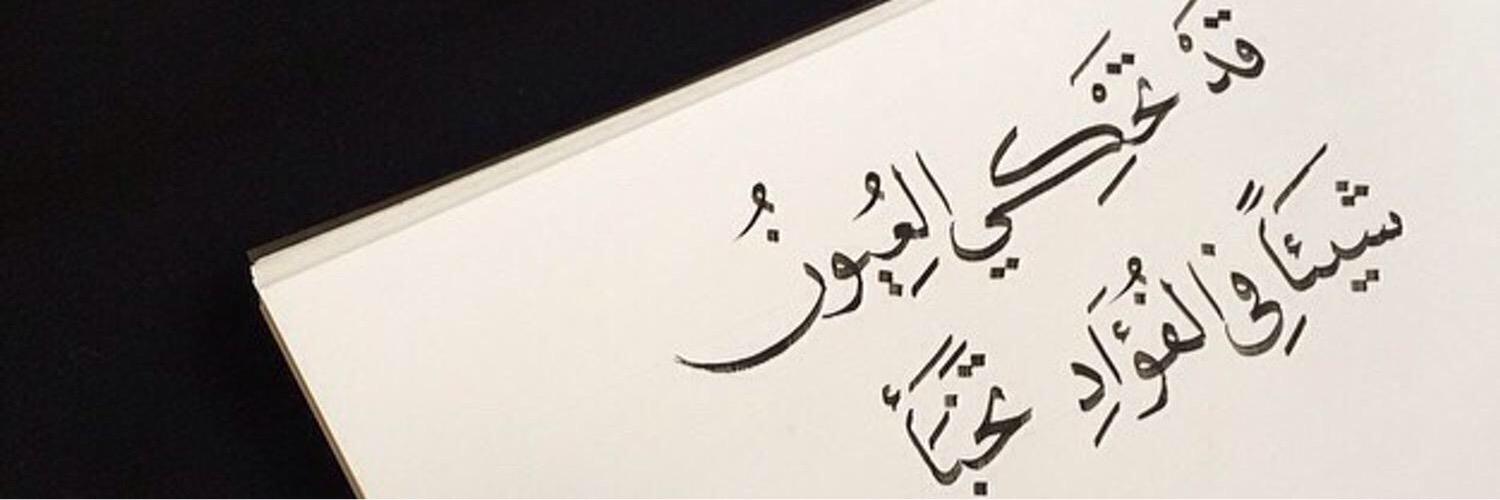 قَدْ تَحْكِي العُيونُ
شَيئَاً فِي الفُؤَادِ تَخَبَّأَ